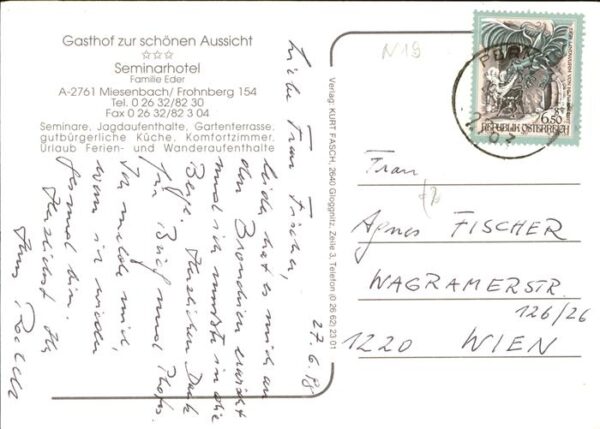 Gasthof zur schönen Aussicht
☆☆☆
Seminarhotel
Familie Eder
A-2761 Miesenbach/ Frohnberg 154
Tel. 0 26 32/82 30
Fax 0 26 32/82 3 04
Seminare, Jagdaufenthalte, Gartenterrasse,
gutbürgerliche Küche, Komfortzimmer,
Urlaub Ferien- und Wanderaufenthalte
27. 6. 98
Liebe Frau Fischer,
leider hat es mich an
den Bronchien erwischt
und ich musste in die
Berge. Herzlichen Dank
für Brief und Photos.
Ich melde mich,
wenn ich wieder
gesund bin.
Herzlichst Ihr
Hans
Verlag: KURT FASCH, 2640 Gloggnitz, Zeile 3, Telefon (0 26 62) 23 01
N19
6.50
REPUBLIK ÖSTERREICH
Frau
Agnes FISCHER
WAGRAMERSTR.
126/26
1220 WIEN